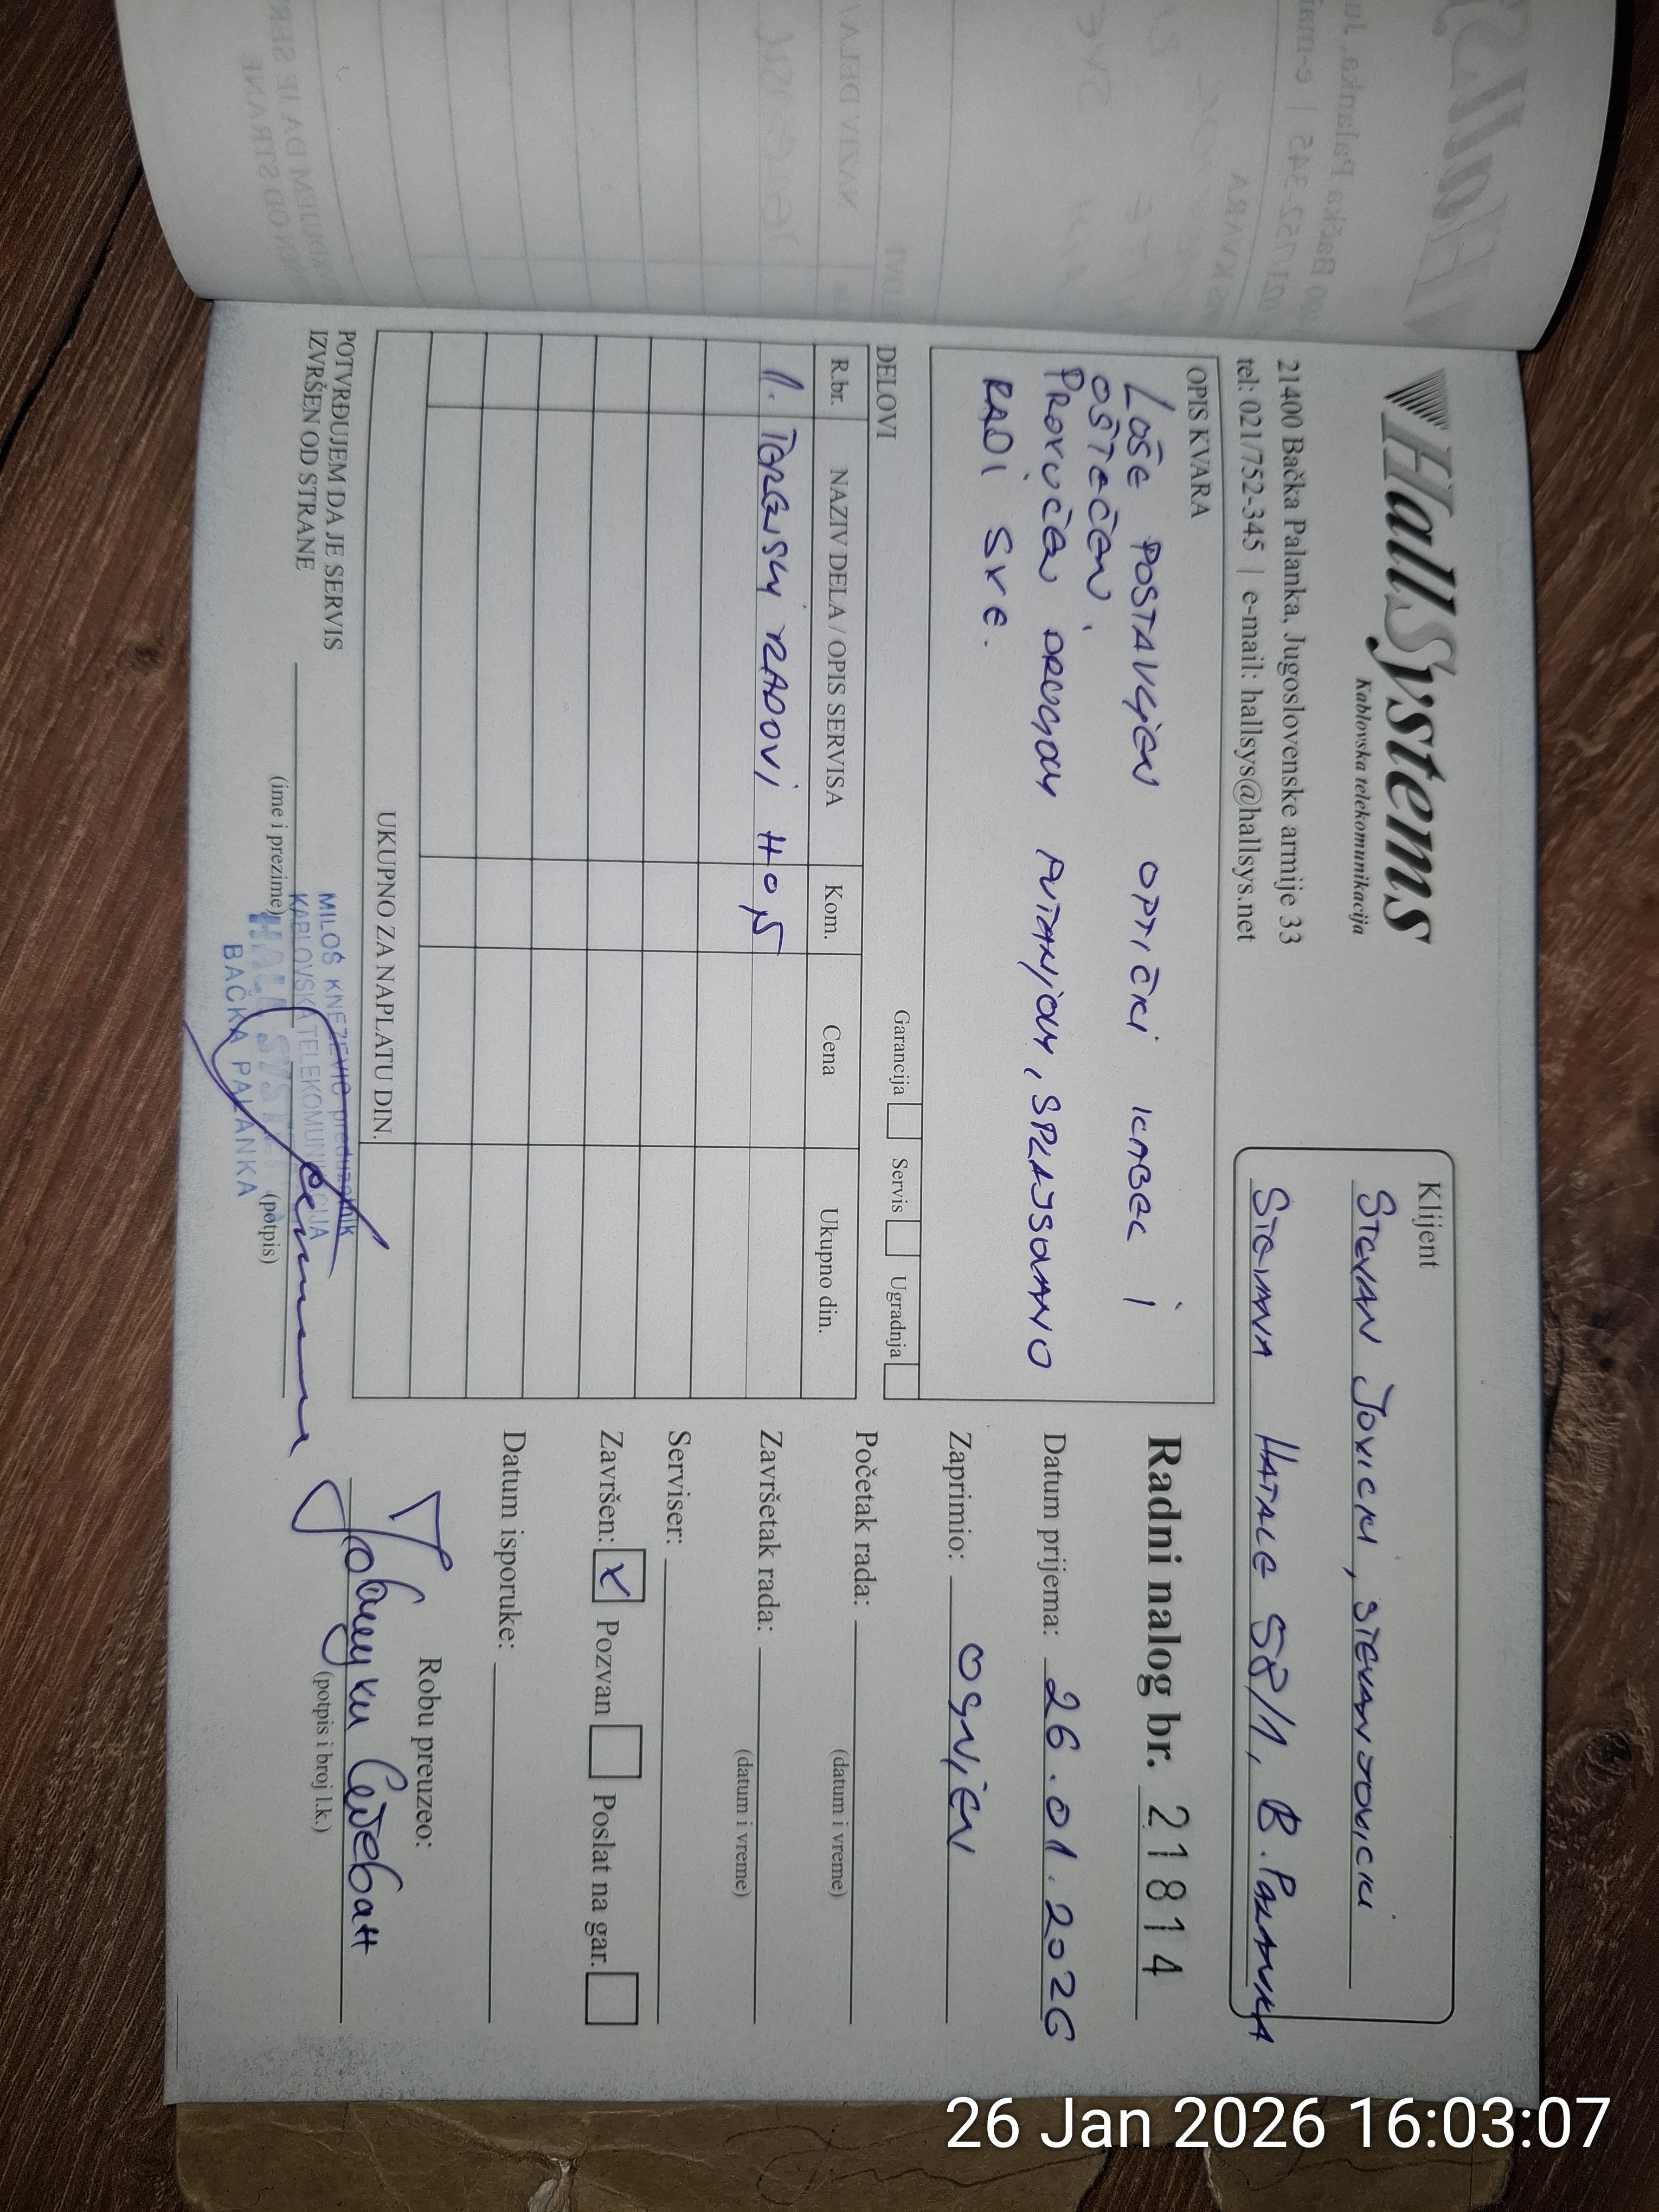 HallSystems
Kablovska telekomunikacija
21400 Bačka Palanka, Jugoslovenske armije 33
tel: 021/752-345 | e-mail: hallsys@hallsys.net
Klijent
STEVAN JOVICKI, STEVAN JOVICKI
HATALE 58/1, B. PALANKA
OPIS KVARA
LOŠE POSTAVLJEN OPTIČKI KABEL I
OŠTEĆEN.
PROVUČEN DRUGOM PUTANJOM, SPLAJSOVANO
RADI SVE.
Radni nalog br. 21814
Datum prijema: 26.01.2026
Zaprimio: OGNJEN
Početak rada:
(datum i vreme)
Završetak rada:
(datum i vreme)
Serviser:
Završen: X Pozvan Poslat na gar.
Datum isporuke:
Robu preuzeo:
Јовицки Стеван
(potpis i broj l.k.)
DELOVI
Garancija Servis Ugradnja
R.br. NAZIV DELA / OPIS SERVISA Kom. Cena Ukupno din.
1. TERENSKI RADOVI H 0,5
UKUPNO ZA NAPLATU DIN.
POTVRĐUJEM DA JE SERVIS
IZVRŠEN OD STRANE
(ime i prezime)
(potpis)
MILOŠ KNEŽEVIĆ preduzetnik
KABLOVSKA TELEKOMUNIKACIJA
HALL SYSTEMS
BAČKA PALANKA
26 Jan 2026 16:03:07